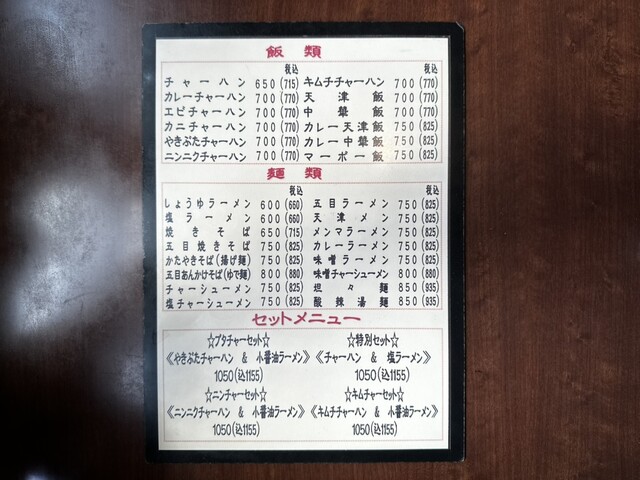 飯類
税込 税込
チャーハン 650(715) キムチチャーハン 700(770)
カレーチャーハン 700(770) 天津飯 700(770)
エビチャーハン 700(770) 中華飯 700(770)
カニチャーハン 700(770) カレー天津飯 750(825)
やきぶたチャーハン 700(770) カレー中華飯 750(825)
ニンニクチャーハン 700(770) マーボー飯 750(825)
麺類
税込 税込
しょうゆラーメン 600(660) 五目ラーメン 750(825)
塩ラーメン 600(660) 天津メン 750(825)
焼きそば 650(715) メンマラーメン 750(825)
五目焼きそば 750(825) カレーラーメン 750(825)
かたやきそば(揚げ麺) 750(825) 味噌ラーメン 750(825)
五目あんかけそば(ゆで麺) 800(880) 味噌チャーシューメン 800(880)
チャーシューメン 750(825) 坦々麺 850(935)
塩チャーシューメン 750(825) 酸辣湯麺 850(935)
セットメニュー
☆ブタチャーセット☆ ☆特別セット☆
《やきぶたチャーハン & 小醤油ラーメン》 《チャーハン & 塩ラーメン》
1050(込1155) 1050(込1155)
☆ニンチャーセット☆ ☆キムチャーセット☆
《ニンニクチャーハン & 小醤油ラーメン》 《キムチチャーハン & 小醤油ラーメン》
1050(込1155) 1050(込1155)